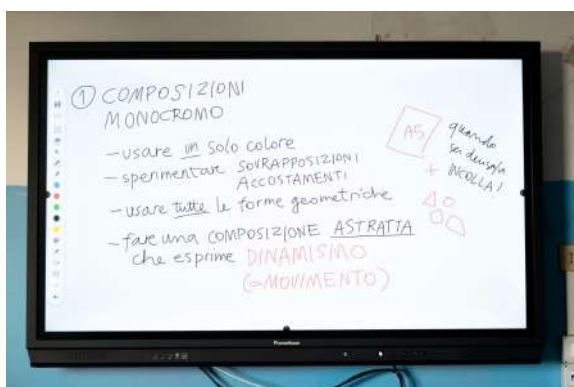 ① COMPOSIZIONI
MONOCROMO
- usare un solo colore
- sperimentare SOVRAPPOSIZIONI
ACCOSTAMENTI
- usare tutte le forme geometriche
- fare una COMPOSIZIONE ASTRATTA
che esprime DINAMISMO
(=MOVIMENTO)
A5
quando
sei
INCOLLA!
+
Promethean